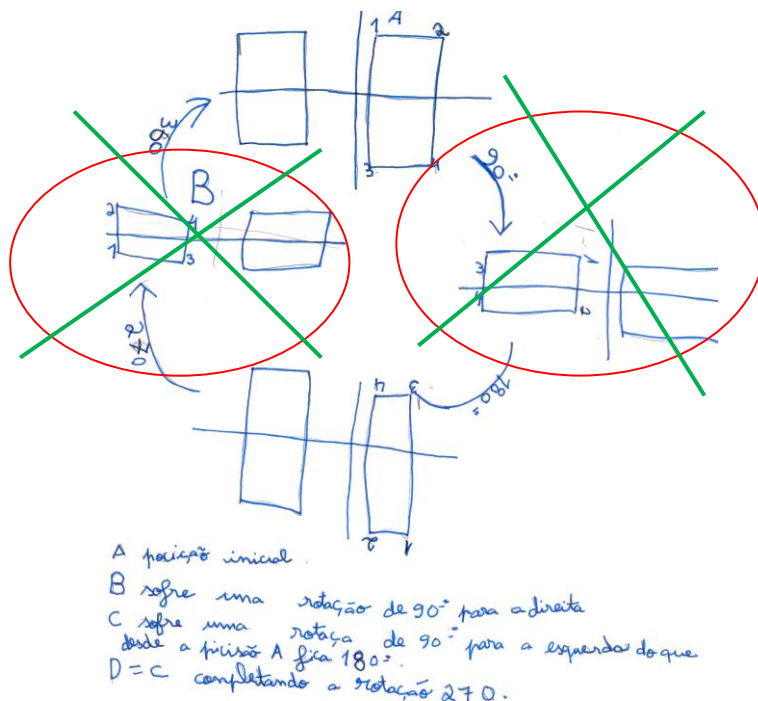 1 A 2
3 4
90º
360
B
2 4
1 3
3
4 2
270
180º
4 3
2 1
A posição inicial
B sofre uma rotação de 90º para a direita
C sofre uma rotaça de 90º para a esquerda do que
desde a picisão A fica 180º.
D = C completando a rotação 270.